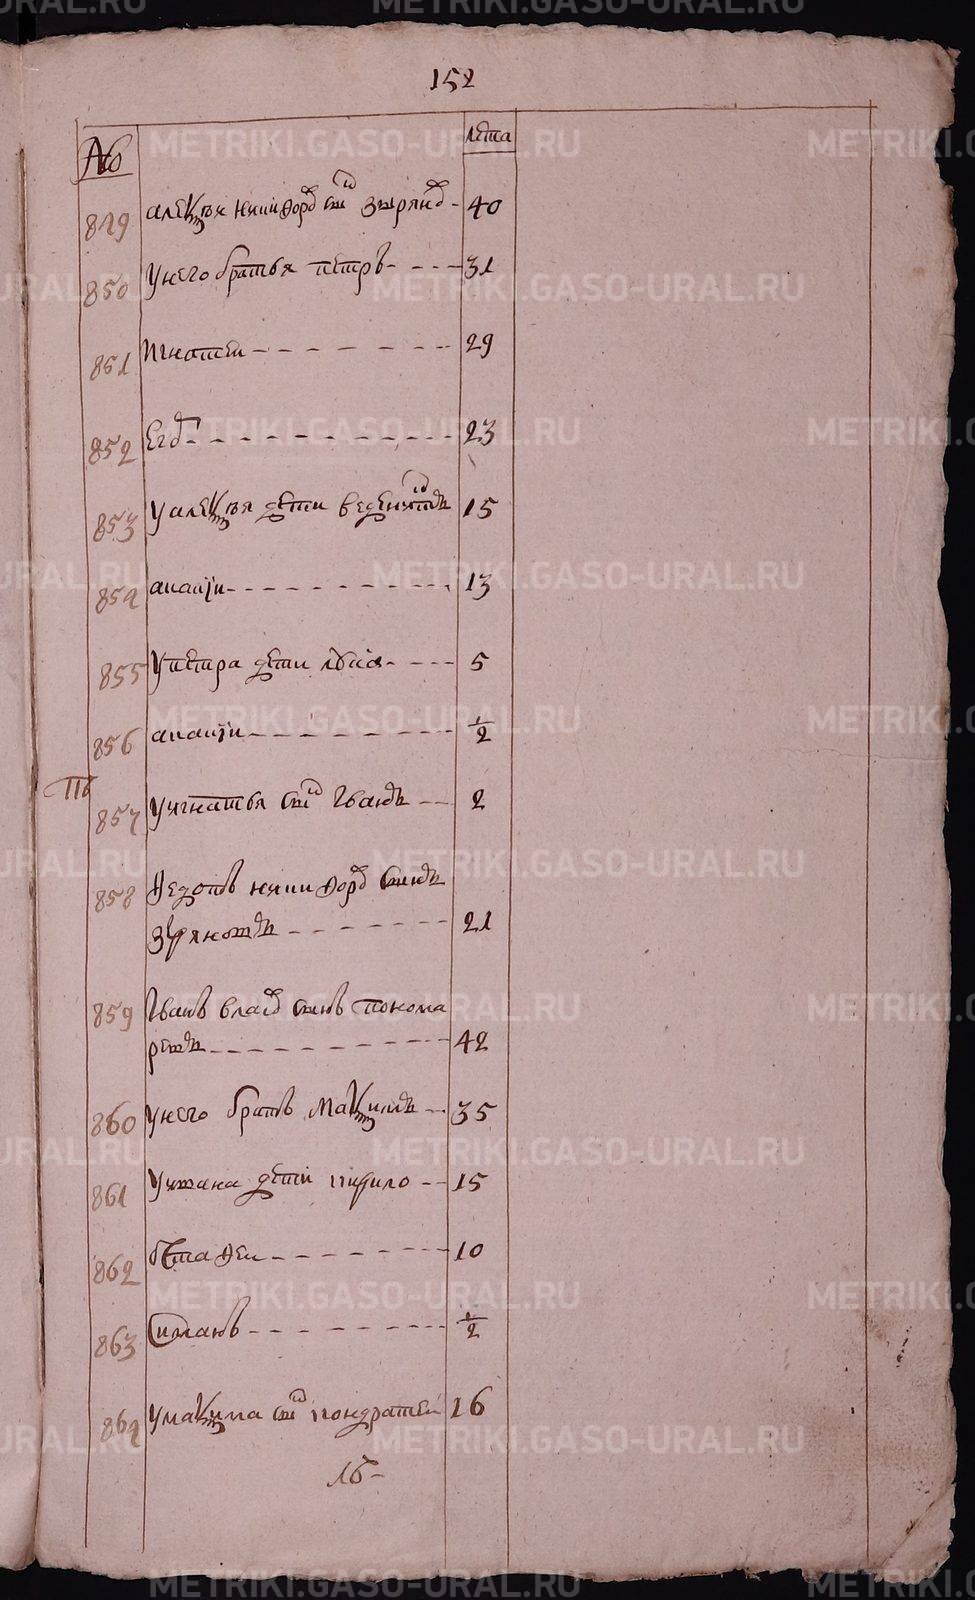 152
№
лета
849 алеѯѣи никифоро сн зыряно 40
850 У него братья петръ 31
851 Игнатеи 29
852 Егор 23
853 У алеѯѣя дети веденихтъ 15
854 ананiи 13
855 У петра дети 5
856 ананiи 1/2
857 У игнатья сн Iванъ 2
858 Ѳедотъ никифоро сынъ
зыряновъ 21
859 Iванъ власо сынъ понома
ревъ 42
860 У него братъ Маѯимъ 35
861 У ивана дети гаврило 15
862 Естаѳеи 10
863 Симанъ 1/2
864 У маѯима сн кондратеи 16
16
METRIKI.GASO-URAL.RU